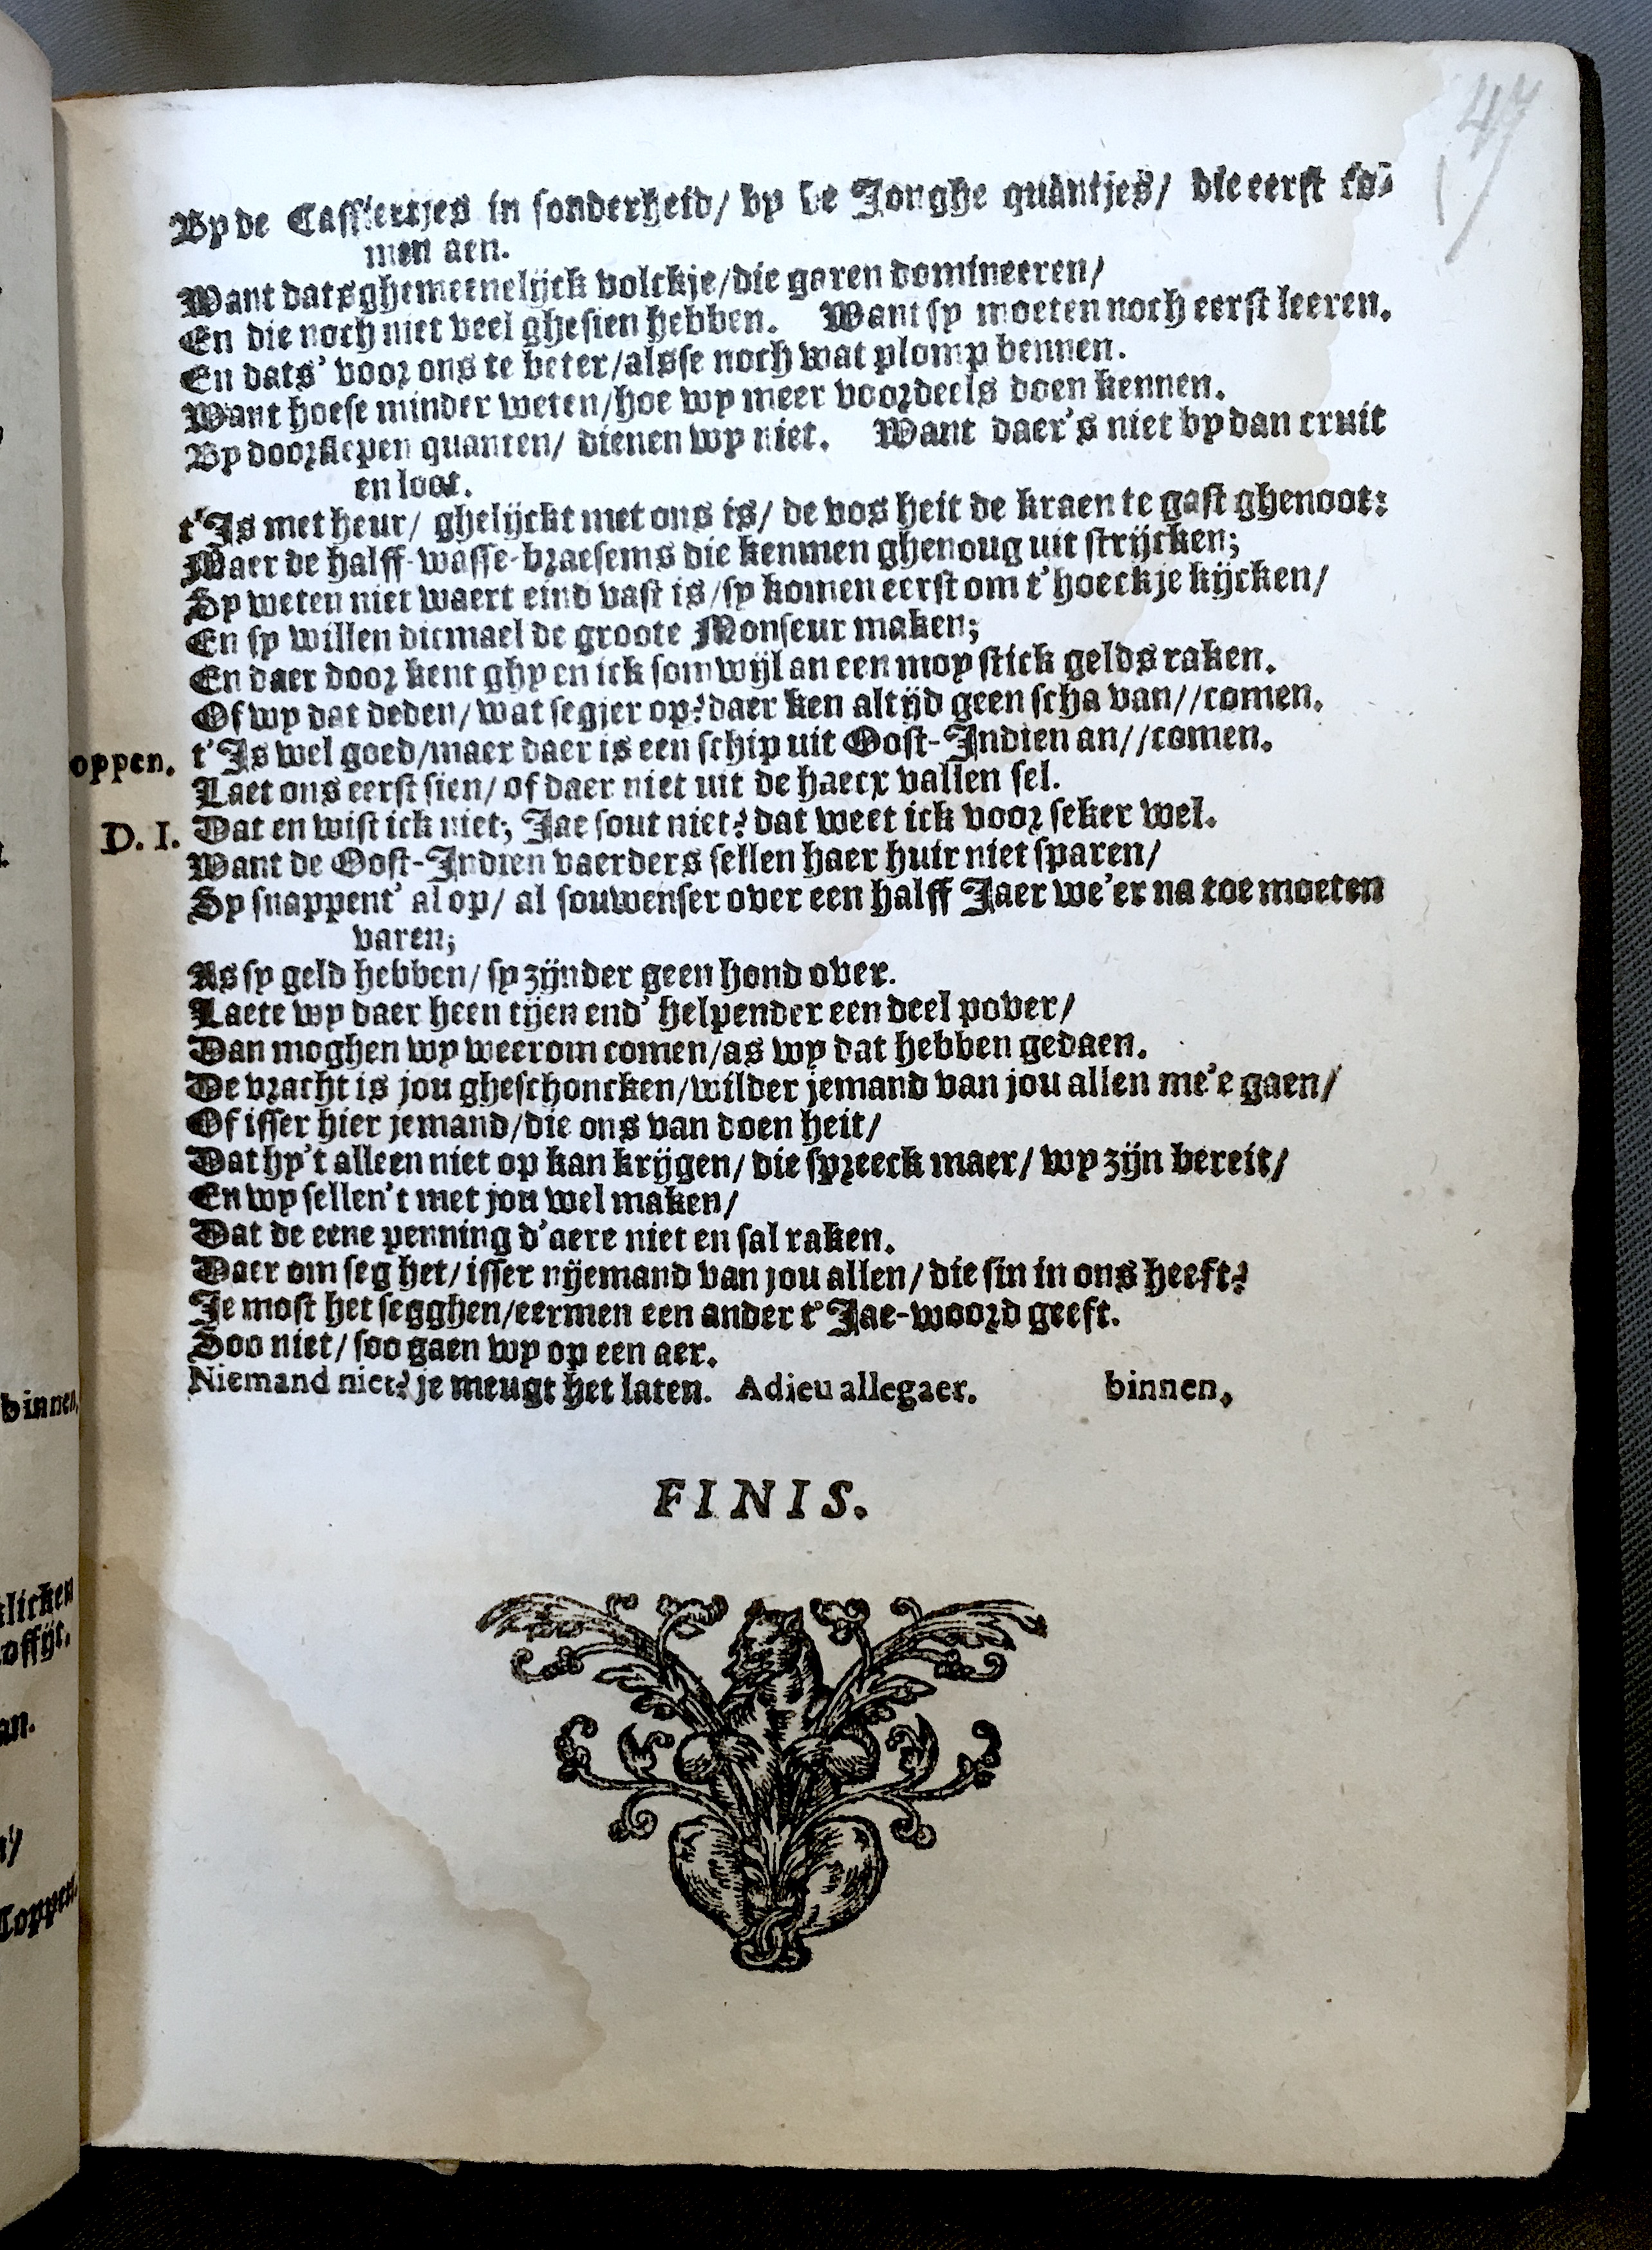 47
By de Cassiertjes in sonderheid/ by de Jonghe quantjes/ die eerst co-
men aen.
Want dats ghemeenelijck volckje/die garen domineeren/
En die noch niet veel ghesien hebben. Want sy moeten noch eerst leeren.
En dats' voor ons te beter/alsse noch wat plomp bennen.
Want hoese minder weten/hoe wy meer voordeels doen kennen.
By doorslepen quanten/ dienen wy niet. Want daer's niet by dan cruit
en loot.
t'Is met heur/ ghelijckt met ons is/ de vos heit de kraen te gast ghenoot:
Maer de halff-wasse-braesems die kenmen ghenoug uit strijcken;
Sy weten niet waert eind vast is/sy komen eerst om t'hoeckje kijcken/
En sy willen dicmael de groote Monseur maken;
En daer door kent ghy en ick somwijl an een moy stick gelds raken.
Of wy dat deden/wat segjer op? daer ken altijd geen scha van//comen.
oppen. t'Is wel goed/maer daer is een schip uit Oost-Indien an//comen.
Laet ons eerst sien/ of daer niet uit de haecx vallen sel.
D. I. Dat en wist ick niet; Jae sout niet? dat weet ick voor seker wel.
Want de Oost-Indien vaerders sellen haer huir niet sparen/
Sy snappent' al op/ al souwenser over een halff Jaer we'er na toe moeten
varen;
As sy geld hebben/ sy zijnder geen hond over.
Laete wy daer heen tijen end' helpender een deel pover/
Dan moghen wy weerom comen/as wy dat hebben gedaen.
De vracht is jou gheschoncken/wilder jemand van jou allen me'e gaen/
Of isser hier jemand/die ons van doen heit/
Dat hy't alleen niet op kan krijgen/ die spreeck maer/ wy zijn bereit/
En wy sellen't met jou wel maken/
Dat de eene penning d'aere niet en sal raken.
Daer om seg het/ isser nijemand van jou allen/ die sin in ons heeft?
Je most het segghen/eermen een ander t'Jae-woord geeft.
Soo niet/ soo gaen wy op een aer.
Niemand niet? je meugt het laten. Adieu allegaer. binnen,
FINIS.
binnen,
licken
offijt.
an.
Toppen.